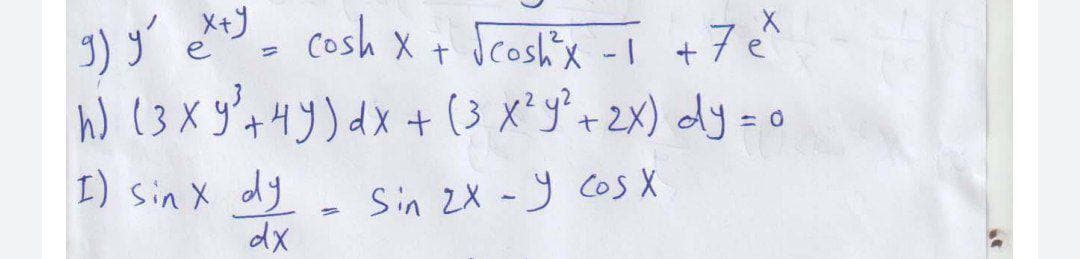 g) y' e^{x+y} = cosh x + √(cosh²x - 1) + 7 e^x
h) (3 x y³ + 4y) dx + (3 x² y² + 2x) dy = 0
I) sin x dy/dx = sin 2x - y cos x